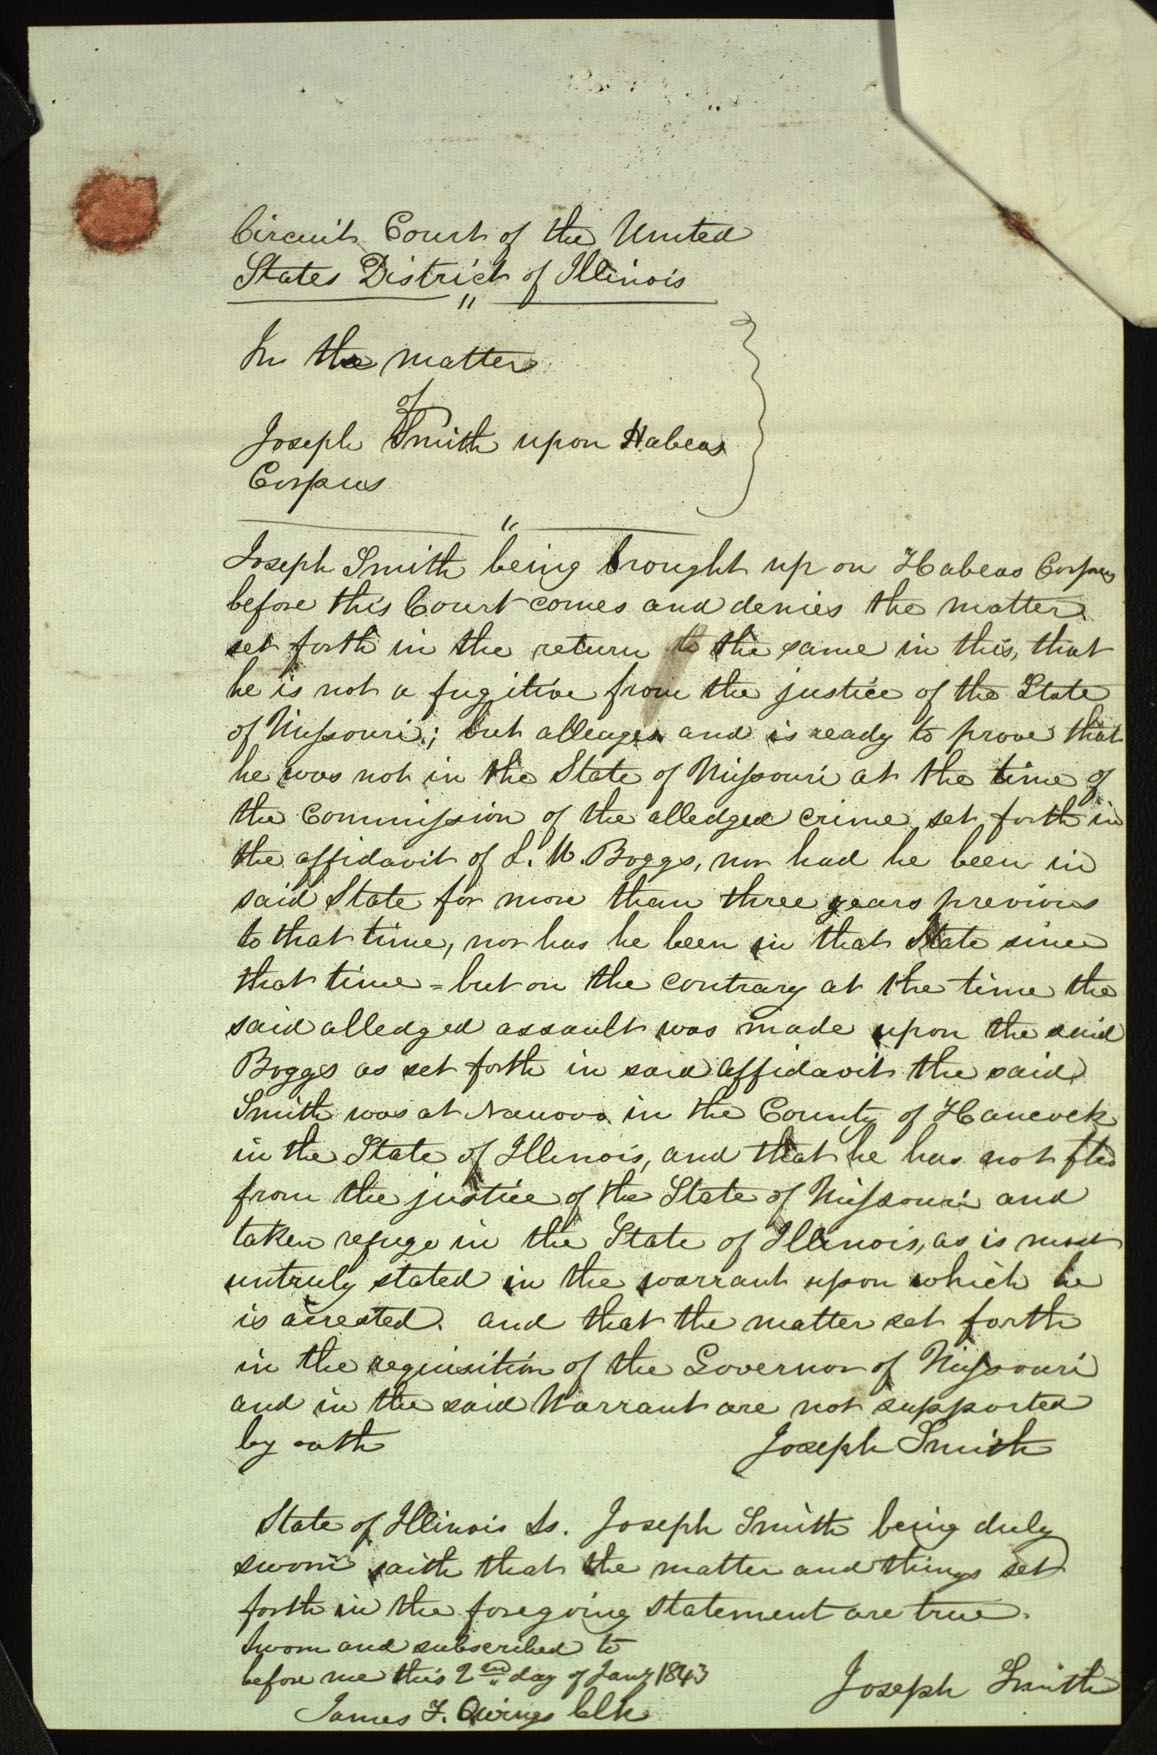 Circuit Court of the United
States District of Illinois
"
In the matter
of
Joseph Smith upon Habeas
Corpus
"
Joseph Smith being brought up on Habeas Corpus
before this Court comes and denies the matter
set forth in the return to the same in this, that
he is not a fugitive from the justice of the State
of Missouri; but alleages and is ready to prove that
he was not in the State of Missouri at the time of
the Commission of the alledged crime set forth in
the affidavit of L. W. Boggs, nor had he been in
said State for more than three years previous
to that time, nor has he been in that State since
that time = but on the contrary at the time the
said alledged assault was made upon the said
Boggs as set forth in said affidavit the said
Smith was at Nauvoo in the County of Hancock
in the State of Illinois, and that he has not fled
from the justice of the State of Missouri and
taken refuge in the State of Illinois, as is most
untruly stated in the warrant upon which he
is arrested. and that the matter set forth
in the requisition of the Governor of Missouri
and in the said Warrant are not supported
by oath Joseph Smith
State of Illinois Ss. Joseph Smith being duly
sworn saith that the matter and things set
forth in the foregoing statement are true.
Sworn and subscribed to
before me this 2nd day of Jany 1843
Joseph Smith
James F. Owings Clk